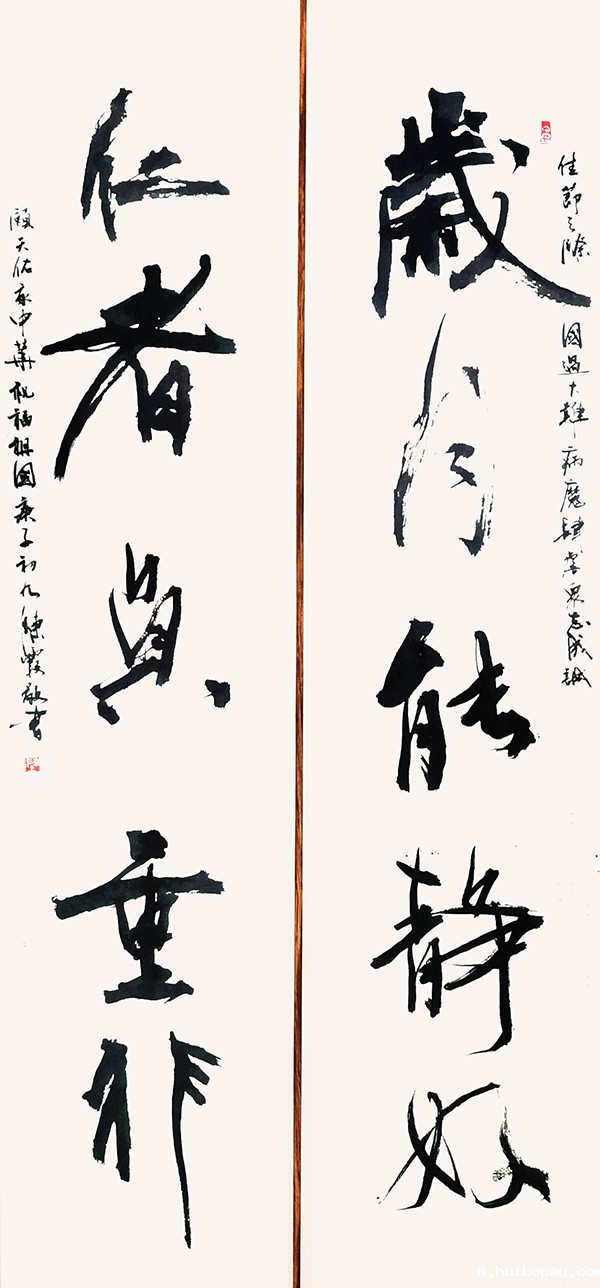 佳節之際 國遇大難 病魔肆虐眾志成城
歲月能靜好
仁者負重行
願天佑我中華祝福祖國庚子初九敬書
m.huibopay.com